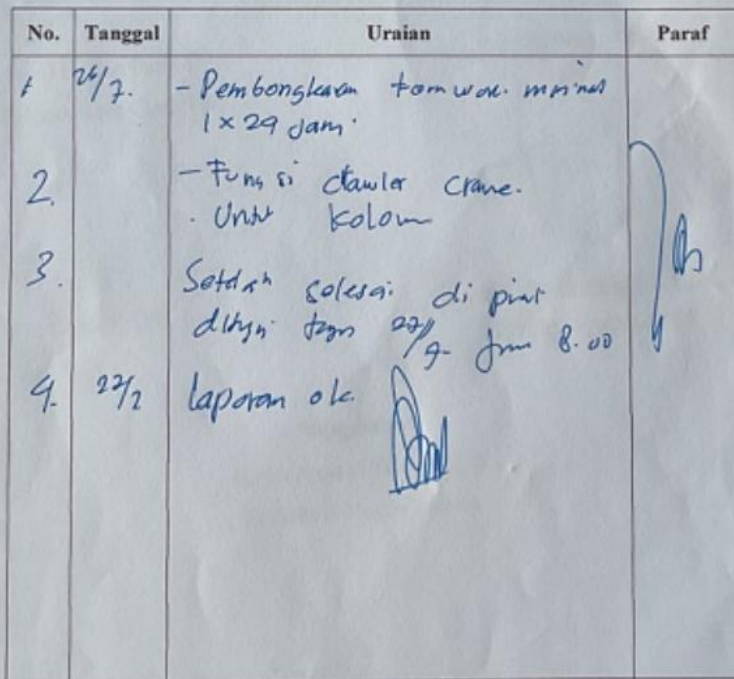 No. Tanggal Uraian Paraf
1 26/7. - Pembongkaran minimal
1 x 24 Jam.
2. - Fungsi Crawler Crane.
Untuk kolom
3. Setelah selesai di
27/7- Jam 8.00
4. 27/7 laporan ok.